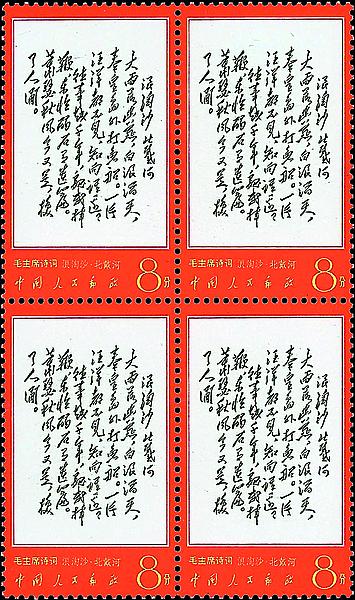 浪淘沙 北戴河
大雨落幽燕,白浪滔天,
秦皇岛外打鱼船。一片
汪洋都不见,知向谁边?
往事越千年,魏武挥
鞭,东临碣石有遗篇。
萧瑟秋风今又是,换
了人间。
毛主席诗词 浪淘沙·北戴河
中国人民邮政 8分
浪淘沙 北戴河
大雨落幽燕,白浪滔天,
秦皇岛外打鱼船。一片
汪洋都不见,知向谁边?
往事越千年,魏武挥
鞭,东临碣石有遗篇。
萧瑟秋风今又是,换
了人间。
毛主席诗词 浪淘沙·北戴河
中国人民邮政 8分
浪淘沙 北戴河
大雨落幽燕,白浪滔天,
秦皇岛外打鱼船。一片
汪洋都不见,知向谁边?
往事越千年,魏武挥
鞭,东临碣石有遗篇。
萧瑟秋风今又是,换
了人间。
毛主席诗词 浪淘沙·北戴河
中国人民邮政 8分
浪淘沙 北戴河
大雨落幽燕,白浪滔天,
秦皇岛外打鱼船。一片
汪洋都不见,知向谁边?
往事越千年,魏武挥
鞭,东临碣石有遗篇。
萧瑟秋风今又是,换
了人间。
毛主席诗词 浪淘沙·北戴河
中国人民邮政 8分